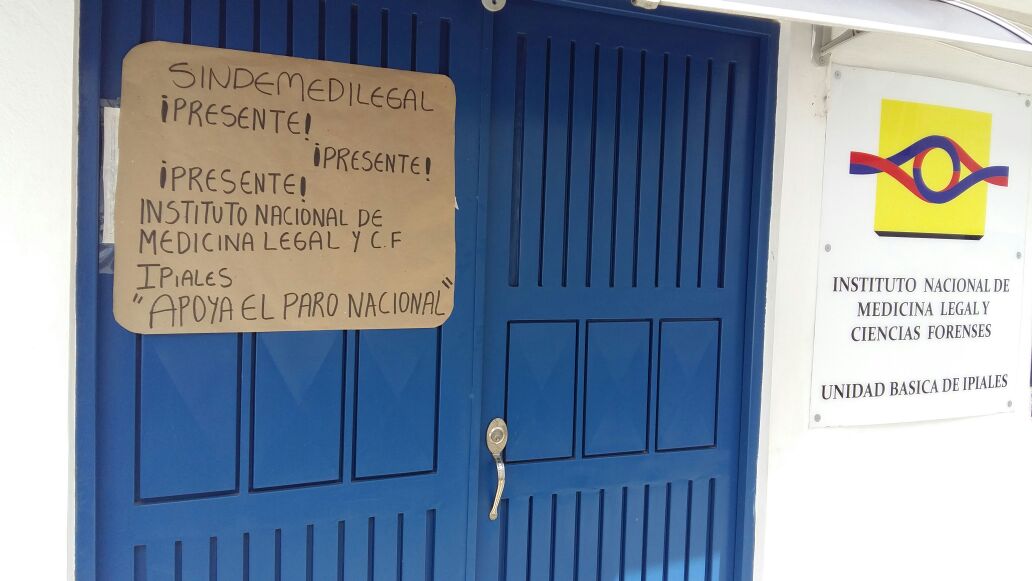 SINDEMEDILEGAL
¡PRESENTE!
¡PRESENTE!
¡PRESENTE!
INSTITUTO NACIONAL DE
MEDICINA LEGAL Y C.F
IPIALES
"APOYA EL PARO NACIONAL"
INSTITUTO NACIONAL DE
MEDICINA LEGAL Y
CIENCIAS FORENSES
UNIDAD BASICA DE IPIALES